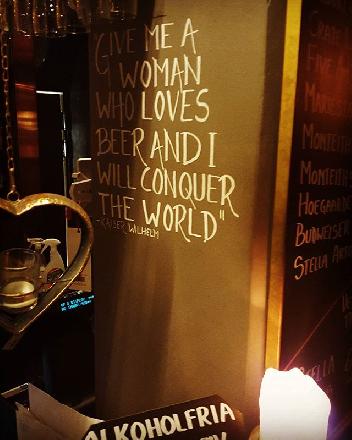 GIVE ME A
WOMAN
WHO LOVES
BEER AND I
WILL CONQUER
THE WORLD"
-KAISER WILHELM
MONTEITH
MONTEITH
HOEGAARDE
BUDWEISER
STELLA ARTO
STELLA
ALKOHOLFRIA